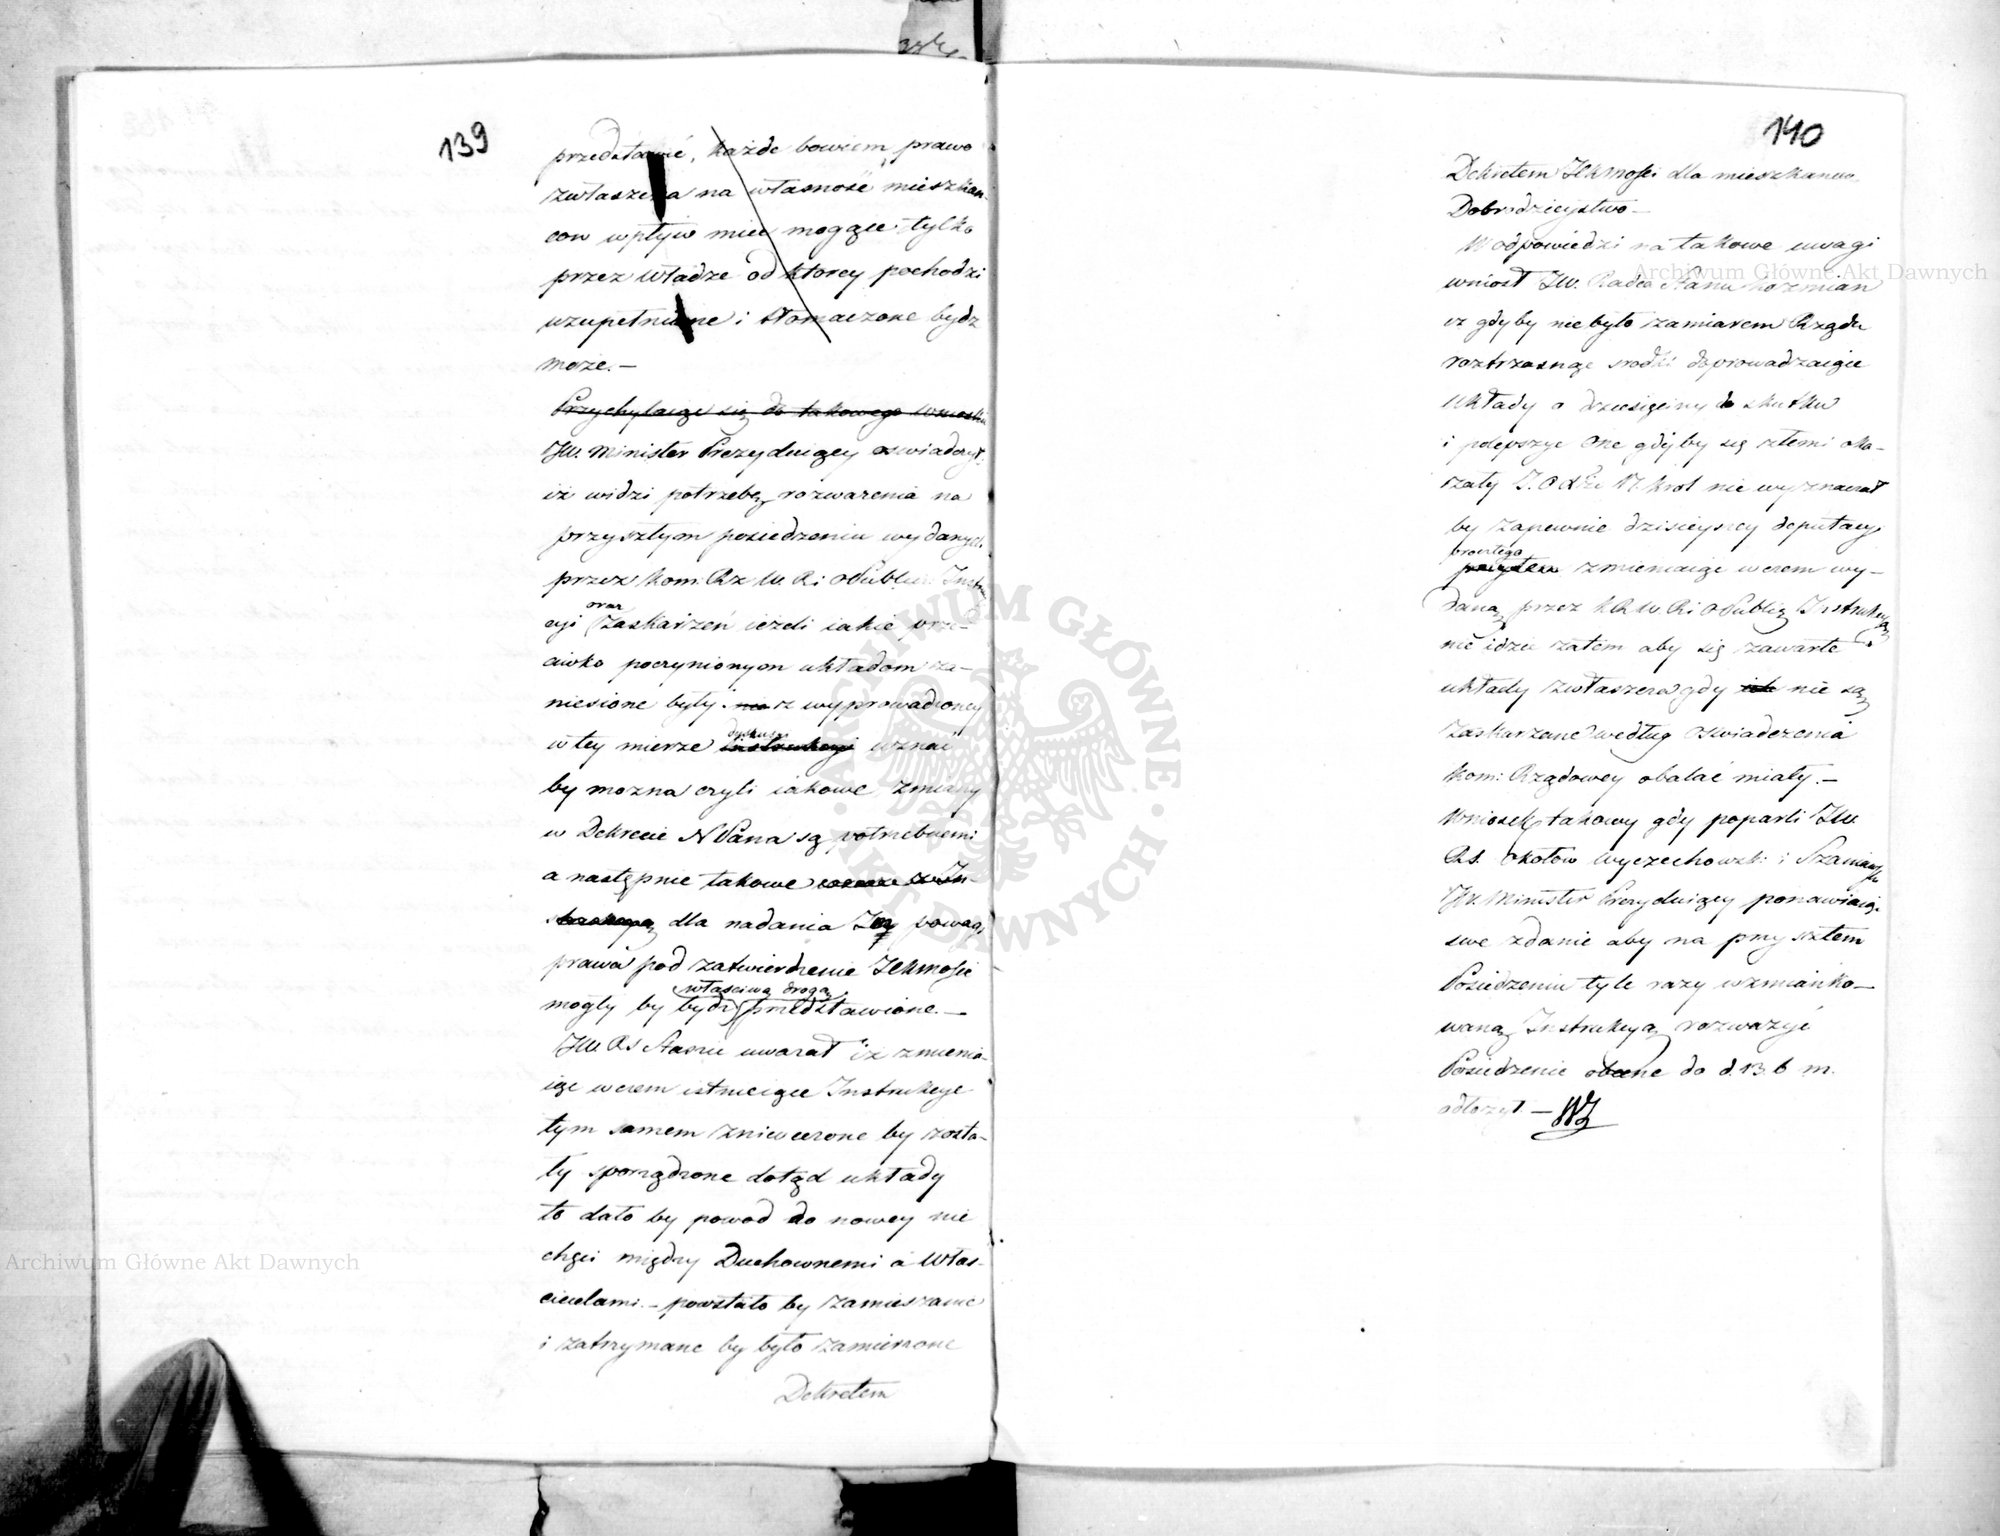 139
przedstawić, każde bowiem prawo
zwłaszcza na własność mieszkan-
cow wpływ mieć mogące tylko
przez władze od ktorey pochodzi
uzupełnione i tłomaczone bydź
może.—
Przychylaiąc się do takowego wniosku
JW. Minister Prezyduiący oswiadczył
iż widzi potrzebę rozwarzenia na
przyszłym posiedzeniu wydanych
przez Kom: Rz W. R. i O Public: Instru
oraz
cyi zaskarżeń ieżeli iakie prze-
ciwko poczynionym układom za-
niesione były z wyprowadzoney
dyskusyi
w tey mierze instrukcyi uznać
by można czyli iakowe zmiany
w Dekrecie N Pana są potrzebnemi
a następnie takowe
dla nadania powagi
prawa pod zatwierdzenie JKMosci
właściwą drogą
mogły by bydź przedstawione.—
JW. RS Staszic uwarał iż zmienia-
iąc w czem istnieiące Instrukcye
tym samem zniweczone by zosta-
ły sporządzone dotąd układy
to dało by powod do nowey nie
chęci między Duchownemi a Włas-
cicielami.— powstało by zamieszanie
i zatrzymane by było zamierzone
Dekretem
140
Dekretem JKMosci dla mieszkancow
Dobrodzieystwo—
W odpowiedzi na takowe uwagi
wniosł JW. Radca Stanu Kozmian
iż gdyby nie było zamiarem Rządu
roztrząsnąć srodki doprowadzaiące
układy o dziesięciny do skutku
i polepszyć one gdyby się złemi oka-
zały J. O. Xże N. Krol nie wyznaczał
by zapewnie dzisieyszey deputacyi
procz tego
zmieniaiąc w czem wy-
daną przez K R W. R i O Public Instrukcyą
nie idzie zatem aby się zawarte
układy zwłaszcza gdy nie są
zaskarżane według oswiadczenia
Kom: Rządowey obalać miały.—
Wniosek takowy gdy poparli JW.
RS. Okołow Wyczechowski i Szaniawski
JW. Minister Prezyduiący ponawiaiąc
swe zdanie aby na przyszłem
Posiedzeniu tyle razy wzmianko-
waną Instrukcyą rozważyć
Posiedzenie obecne do d. 13. b m.
odłożył.—
Archiwum Główne Akt Dawnych
Archiwum Główne Akt Dawnych
ARCHIWUM GŁÓWNE AKT DAWNYCH